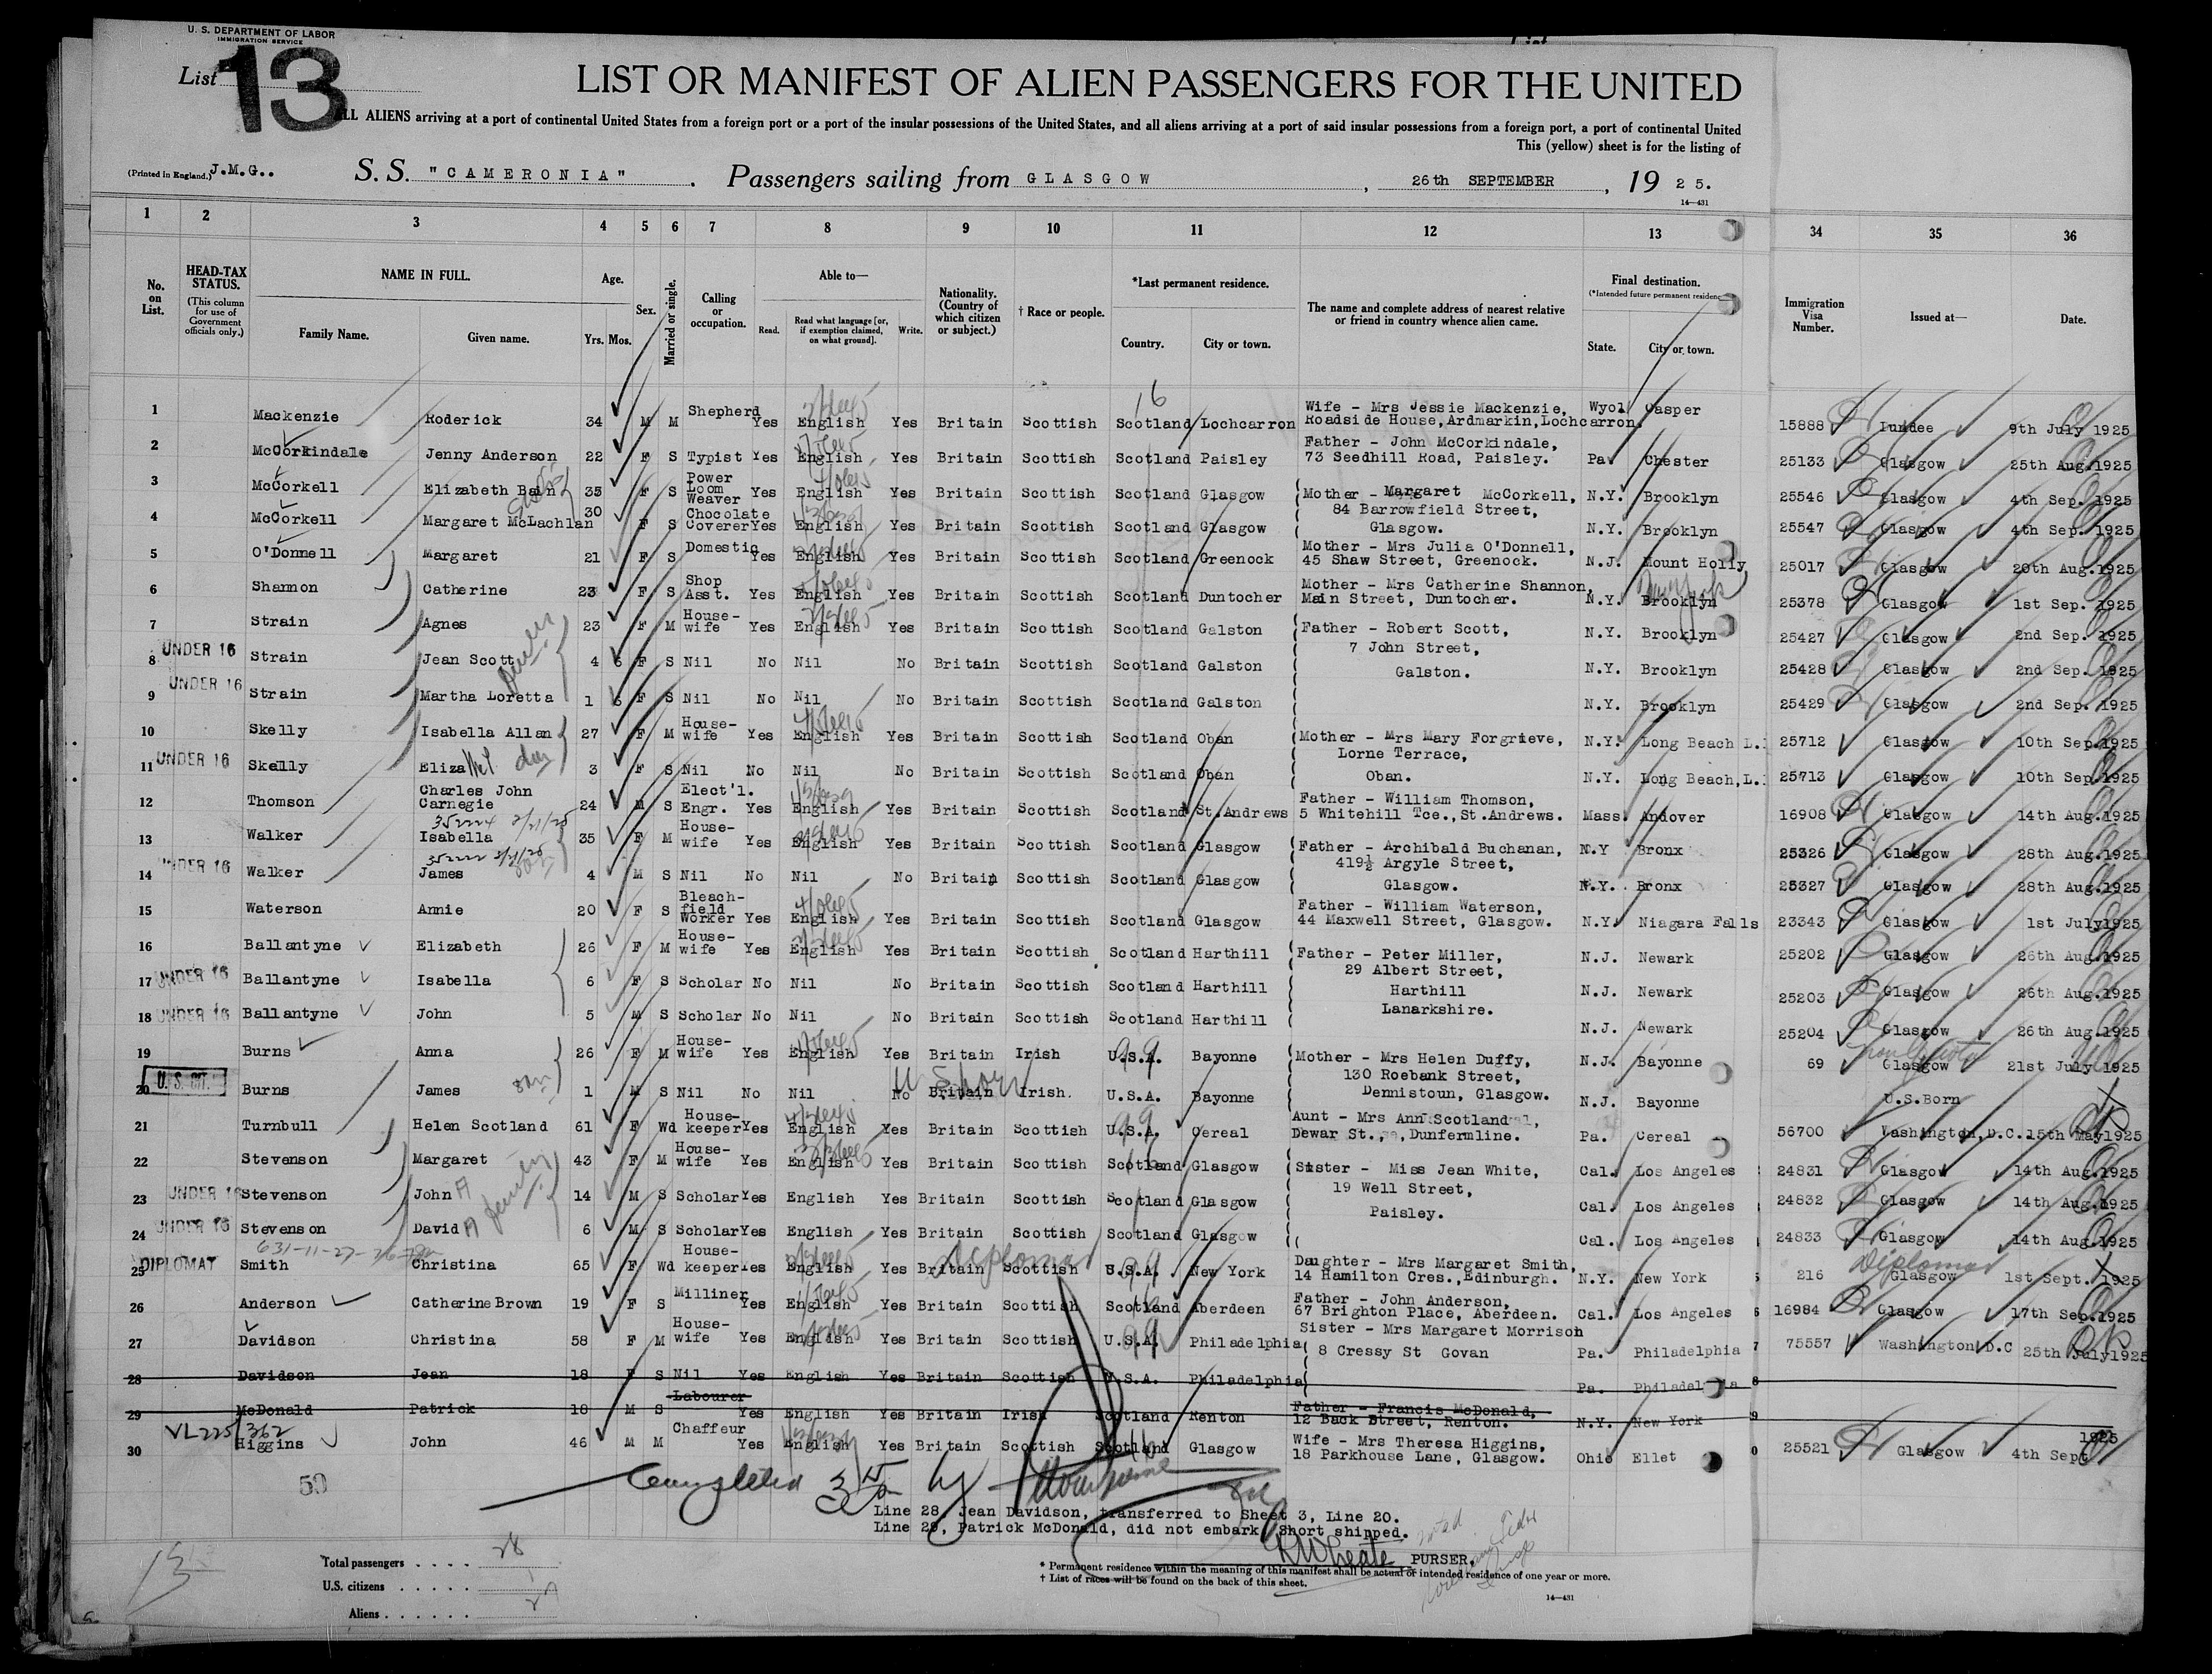 U. S. DEPARTMENT OF LABOR
IMMIGRATION SERVICE
List 13
LIST OR MANIFEST OF ALIEN PASSENGERS FOR THE UNITED
ALL ALIENS arriving at a port of continental United States from a foreign port or a port of the insular possessions of the United States, and all aliens arriving at a port of said insular possessions from a foreign port, a port of continental United
This (yellow) sheet is for the listing of
(Printed in England.) J.M.G..
S. S. "CAMERONIA" . Passengers sailing from GLASGOW , 26th SEPTEMBER , 19 25.
14—431
1 2 3 4 5 6 7 8 9 10 11 12 13 34 35 36
No. on List.
HEAD-TAX STATUS.
(This column for use of Government officials only.)
NAME IN FULL.
Family Name. Given name.
Age.
Yrs. Mos.
Sex.
Married or single.
Calling or occupation.
Able to—
Read. Read what language [or, if exemption claimed, on what ground]. Write.
Nationality. (Country of which citizen or subject.)
† Race or people.
*Last permanent residence.
Country. City or town.
The name and complete address of nearest relative or friend in country whence alien came.
Final destination.
(*Intended future permanent residence
State. City or town.
Immigration Visa Number.
Issued at—
Date.
16
1 Mackenzie Roderick 34 M M Shepherd Yes English Yes Britain Scottish Scotland Lochcarron Wife - Mrs Jessie Mackenzie, Roadside House, Ardmarkin, Lochcarron. Wyo. Casper 15888 Dundee 9th July 1925
2 McCorkindale Jenny Anderson 22 F S Typist Yes English Yes Britain Scottish Scotland Paisley Father - John McCorkindale, 73 Seedhill Road, Paisley. Pa. Chester 25133 Glasgow 25th Aug.1925
3 McCorkell Elizabeth Bain 35 F S Power Loom Weaver Yes English Yes Britain Scottish Scotland Glasgow Mother - Margaret McCorkell, N.Y. Brooklyn 25546 Glasgow 4th Sep. 1925
84 Barrowfield Street,
4 McCorkell Margaret McLachlan 30 F S Chocolate Coverer Yes English Yes Britain Scottish Scotland Glasgow Glasgow. N.Y. Brooklyn 25547 Glasgow 4th Sep. 1925
5 O'Donnell Margaret 21 F S Domestic Yes English Yes Britain Scottish Scotland Greenock Mother - Mrs Julia O'Donnell, 45 Shaw Street, Greenock. N.J. Mount Holly 25017 Glasgow 20th Aug.1925
6 Shannon Catherine 23 F S Shop Asst. Yes English Yes Britain Scottish Scotland Duntocher Mother - Mrs Catherine Shannon, Main Street, Duntocher. N.Y. Brooklyn 25378 Glasgow 1st Sep. 1925
7 Strain Agnes 23 F M House-wife Yes English Yes Britain Scottish Scotland Galston Father - Robert Scott, N.Y. Brooklyn 25427 Glasgow 2nd Sep. 1925
7 John Street,
8 UNDER 16 Strain Jean Scott 4 6 F S Nil No Nil No Britain Scottish Scotland Galston Galston. N.Y. Brooklyn 25428 Glasgow 2nd Sep. 1925
9 UNDER 16 Strain Martha Loretta 1 6 F S Nil No Nil No Britain Scottish Scotland Galston N.Y. Brooklyn 25429 Glasgow 2nd Sep. 1925
10 Skelly Isabella Allan 27 F M House-wife Yes English Yes Britain Scottish Scotland Oban Mother - Mrs Mary Forgrieve, N.Y. Long Beach L.I 25712 Glasgow 10th Sep.1925
Lorne Terrace,
11 UNDER 16 Skelly Eliza 3 F S Nil No Nil No Britain Scottish Scotland Oban Oban. N.Y. Long Beach,L.I 25713 Glasgow 10th Sep.1925
12 Thomson Charles John Carnegie 24 M S Elect'l. Engr. Yes English Yes Britain Scottish Scotland St.Andrews Father - William Thomson, 5 Whitehill Tce.,St.Andrews. Mass. Andover 16908 Glasgow 14th Aug.1925
13 Walker Isabella 35 F M House-wife Yes English Yes Britain Scottish Scotland Glasgow Father - Archibald Buchanan, N.Y Bronx 25326 Glasgow 28th Aug.1925
419½ Argyle Street,
14 UNDER 16 Walker James 4 M S Nil No Nil No Britain Scottish Scotland Glasgow Glasgow. N.Y. Bronx 25327 Glasgow 28th Aug.1925
15 Waterson Annie 20 F S Bleach-field Worker Yes English Yes Britain Scottish Scotland Glasgow Father - William Waterson, 44 Maxwell Street, Glasgow. N.Y. Niagara Falls 23343 Glasgow 1st July1925
16 Ballantyne Elizabeth 26 F M House-wife Yes English Yes Britain Scottish Scotland Harthill Father - Peter Miller, N.J. Newark 25202 Glasgow 26th Aug.1925
29 Albert Street,
17 UNDER 16 Ballantyne Isabella 6 F S Scholar No Nil No Britain Scottish Scotland Harthill Harthill N.J. Newark 25203 Glasgow 26th Aug.1925
18 UNDER 16 Ballantyne John 5 M S Scholar No Nil No Britain Scottish Scotland Harthill Lanarkshire. N.J. Newark 25204 Glasgow 26th Aug.1925
19 Burns Anna 26 F M House-wife Yes English Yes Britain Irish U.S.A. Bayonne Mother - Mrs Helen Duffy, N.J. Bayonne 69 Glasgow 21st July 1925
130 Roebank Street,
20 U. S. CIT. Burns James 1 M S Nil No Nil No Britain U S born Irish. U.S.A. Bayonne Dennistoun, Glasgow. N.J. Bayonne U.S.Born
21 Turnbull Helen Scotland 61 F Wd House-keeper Yes English Yes Britain Scottish U.S.A. Cereal Aunt - Mrs Ann Scotland, Dewar St., Dunfermline. Pa. Cereal 56700 Washington,D.C. 15th May1925
22 Stevenson Margaret 43 F M House-wife Yes English Yes Britain Scottish Scotland Glasgow Sister - Miss Jean White, Cal. Los Angeles 24831 Glasgow 14th Aug.1925
19 Well Street,
23 UNDER 16 Stevenson John 14 M S Scholar Yes English Yes Britain Scottish Scotland Glasgow Paisley. Cal. Los Angeles 24832 Glasgow 14th Aug.1925
24 UNDER 16 Stevenson David 6 M S Scholar Yes English Yes Britain Scottish Scotland Glasgow Cal. Los Angeles 24833 Glasgow 14th Aug.1925
25 DIPLOMAT Smith Christina 65 F Wd House-keeper Yes English Yes Britain Diplomat Scottish U.S.A. New York Daughter - Mrs Margaret Smith, 14 Hamilton Cres.,Edinburgh. N.Y. New York 216 Diplomat Glasgow 1st Sept. 1925
26 Anderson Catherine Brown 19 F S Milliner Yes English Yes Britain Scottish Scotland Aberdeen Father - John Anderson, 67 Brighton Place, Aberdeen. Cal. Los Angeles 16984 Glasgow 17th Sep.1925
27 Davidson Christina 58 F M House-wife Yes English Yes Britain Scottish U.S.A. Philadelphia Sister - Mrs Margaret Morrison 8 Cressy St Govan Pa. Philadelphia 75557 Washington D.C 25th July1925
28 Davidson Jean 18 F S Nil Yes English Yes Britain Scottish U.S.A. Philadelphia Pa. Philadelphia
29 McDonald Patrick 18 M S Labourer Yes English Yes Britain Irish Scotland Renton Father - Francis McDonald, 12 Back Street, Renton. N.Y. New York
VL 225/362
30 Higgins John 46 M M Chaffeur Yes English Yes Britain Scottish Scotland Glasgow Wife - Mrs Theresa Higgins, 18 Parkhouse Lane, Glasgow. Ohio Ellet 25521 Glasgow 4th Sept 1925
50
Completed
Line 28, Jean Davidson, transferred to Sheet 3, Line 20.
Line 29, Patrick McDonald, did not embark. Short shipped.
PURSER.
Total passengers . . . . 28
U.S. citizens . . . . . 1
Aliens . . . . . . 27
13
* Permanent residence within the meaning of this manifest shall be actual or intended residence of one year or more.
† List of races will be found on the back of this sheet.
14—431